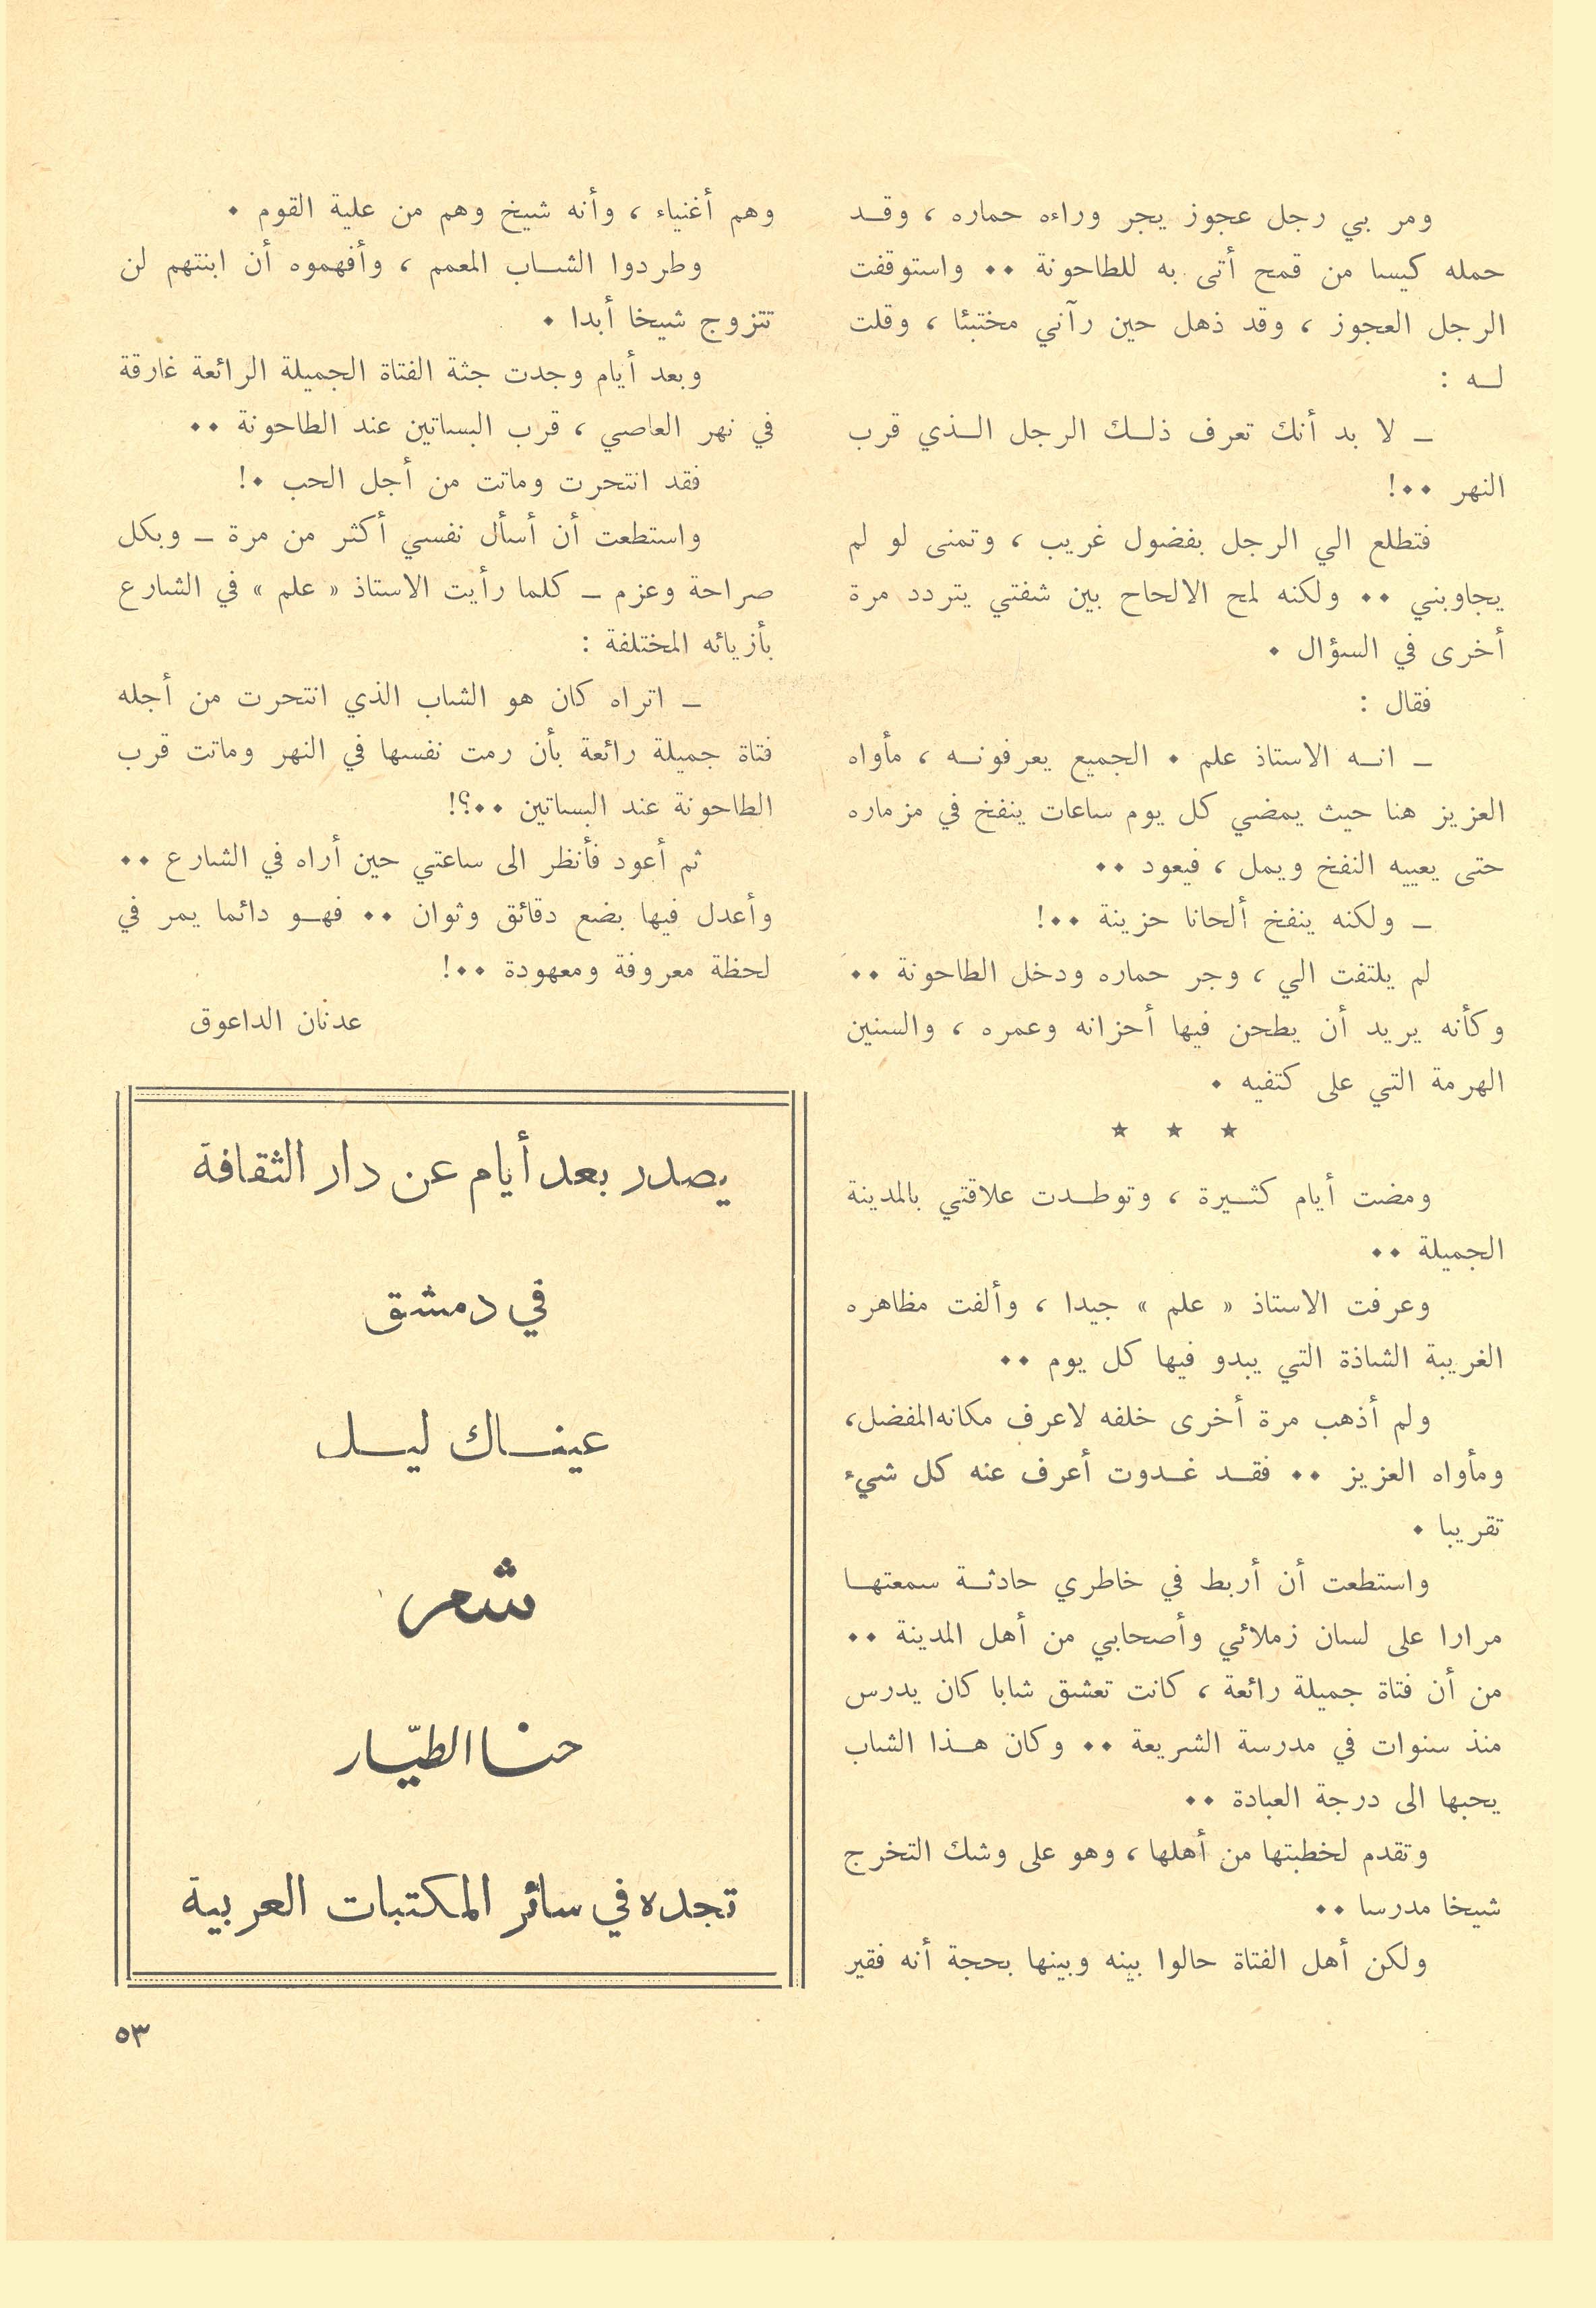 ومر بي رجل عجوز يجر وراءه حماره ، وقد
حمله كيسا من قمح أتى به للطاحونة ٠٠ واستوقفت
الرجل العجوز ، وقد ذهل حين رآني مختبئا ، وقلت
له :
ـ لا بد أنك تعرف ذلك الرجل الذي قرب
النهر ٠٠!
فتطلع الي الرجل بفضول غريب ، وتمنى لو لم
يجاوبني ٠٠ ولكنه لمح الالحاح بين شفتي يتردد مرة
أخرى في السؤال ٠
فقال :
ـ انه الاستاذ علم ٠ الجميع يعرفونه ، مأواه
العزيز هنا حيث يمضي كل يوم ساعات ينفخ في مزماره
حتى يعييه النفخ ويمل ، فيعود ٠٠
ـ ولكنه ينفخ ألحانا حزينة ٠٠!
لم يلتفت الي ، وجر حماره ودخل الطاحونة ٠٠
وكأنه يريد أن يطحن فيها أحزانه وعمره ، والسنين
الهرمة التي على كتفيه ٠
★ ★ ★
ومضت أيام كثيرة ، وتوطدت علاقتي بالمدينة
الجميلة ٠٠
وعرفت الاستاذ « علم » جيدا ، وألفت مظاهره
الغريبة الشاذة التي يبدو فيها كل يوم ٠٠
ولم أذهب مرة أخرى خلفه لاعرف مكانه المفضل،
ومأواه العزيز ٠٠ فقد غدوت أعرف عنه كل شيء
تقريبا ٠
واستطعت أن أربط في خاطري حادثة سمعتها
مرارا على لسان زملائي وأصحابي من أهل المدينة ٠٠
من أن فتاة جميلة رائعة ، كانت تعشق شابا كان يدرس
منذ سنوات في مدرسة الشريعة ٠٠ وكان هذا الشاب
يحبها الى درجة العبادة ٠٠
وتقدم لخطبتها من أهلها ، وهو على وشك التخرج
شيخا مدرسا ٠٠
ولكن أهل الفتاة حالوا بينه وبينها بحجة أنه فقير
وهم أغنياء ، وأنه شيخ وهم من علية القوم ٠
وطردوا الشاب المعمم ، وأفهموه أن ابنتهم لن
تتزوج شيخا أبدا ٠
وبعد أيام وجدت جثة الفتاة الجميلة الرائعة غارقة
في نهر العاصي ، قرب البساتين عند الطاحونة ٠٠
فقد انتحرت وماتت من أجل الحب ٠!
واستطعت أن أسأل نفسي أكثر من مرة ـ وبكل
صراحة وعزم ـ كلما رأيت الاستاذ « علم » في الشارع
بأزيائه المختلفة :
ـ اتراه كان هو الشاب الذي انتحرت من أجله
فتاة جميلة رائعة بأن رمت نفسها في النهر وماتت قرب
الطاحونة عند البساتين ٠٠؟!
ثم أعود فأنظر الى ساعتي حين أراه في الشارع ٠٠
وأعدل فيها بضع دقائق وثوان ٠٠ فهو دائما يمر في
لحظة معروفة ومعهودة ٠٠!
عدنان الداعوق
يصدر بعد أيام عن دار الثقافة
في دمشق
عيناك ليل
شعر
حنا الطيّار
تجده في سائر المكتبات العربية
٥٣